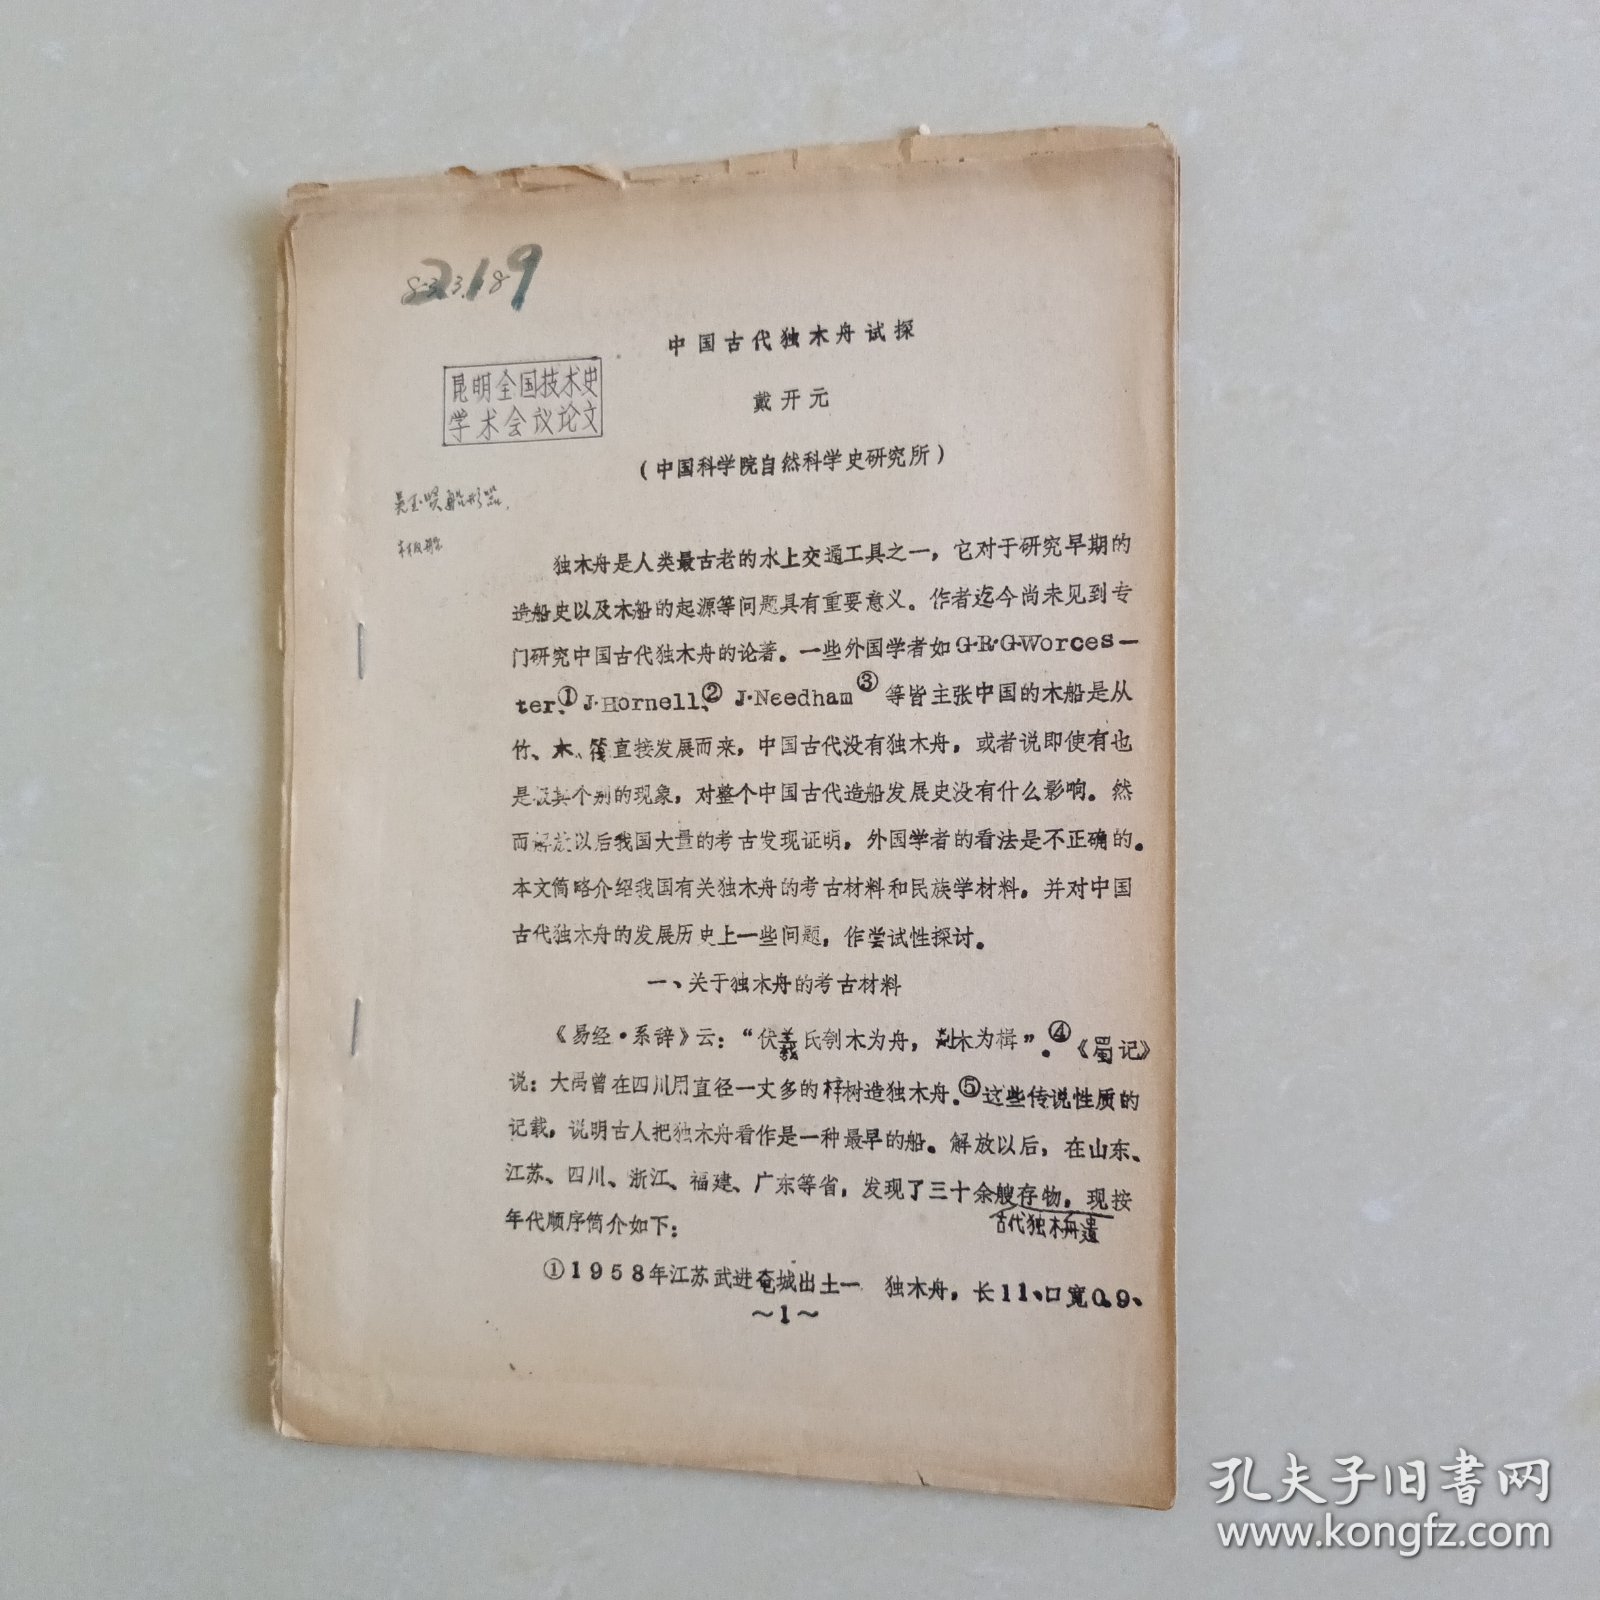 中国古代独木舟试探
昆明全国技术史
学术会议论文
戴开元
（中国科学院自然科学史研究所）
船形
独木舟是人类最古老的水上交通工具之一，它对于研究早期的
造船史以及木船的起源等问题具有重要意义。作者迄今尚未见到专
门研究中国古代独木舟的论著。一些外国学者如G·R·G·Worces—
ter、①J·Hornell、②J·Needham③等皆主张中国的木船是从
竹、木、筏直接发展而来，中国古代没有独木舟，或者说即使有也
是极其个别的现象，对整个中国古代造船发展史没有什么影响。然
而解放以后我国大量的考古发现证明，外国学者的看法是不正确的。
本文简略介绍我国有关独木舟的考古材料和民族学材料，并对中国
古代独木舟的发展历史上一些问题，作尝试性探讨。
一、关于独木舟的考古材料
《易经·系辞》云：“伏羲氏刳木为舟，剡木为楫”。④《蜀记》
说：大禹曾在四川用直径一丈多的梓树造独木舟。⑤这些传说性质的
记载，说明古人把独木舟看作是一种最早的船。解放以后，在山东、
江苏、四川、浙江、福建、广东等省，发现了三十余艘存物，现按
古代独木舟遗
年代顺序简介如下：
①1958年江苏武进奄城出土一 独木舟，长11、口宽0.9、
～1～
孔夫子旧书网
www.kongfz.com